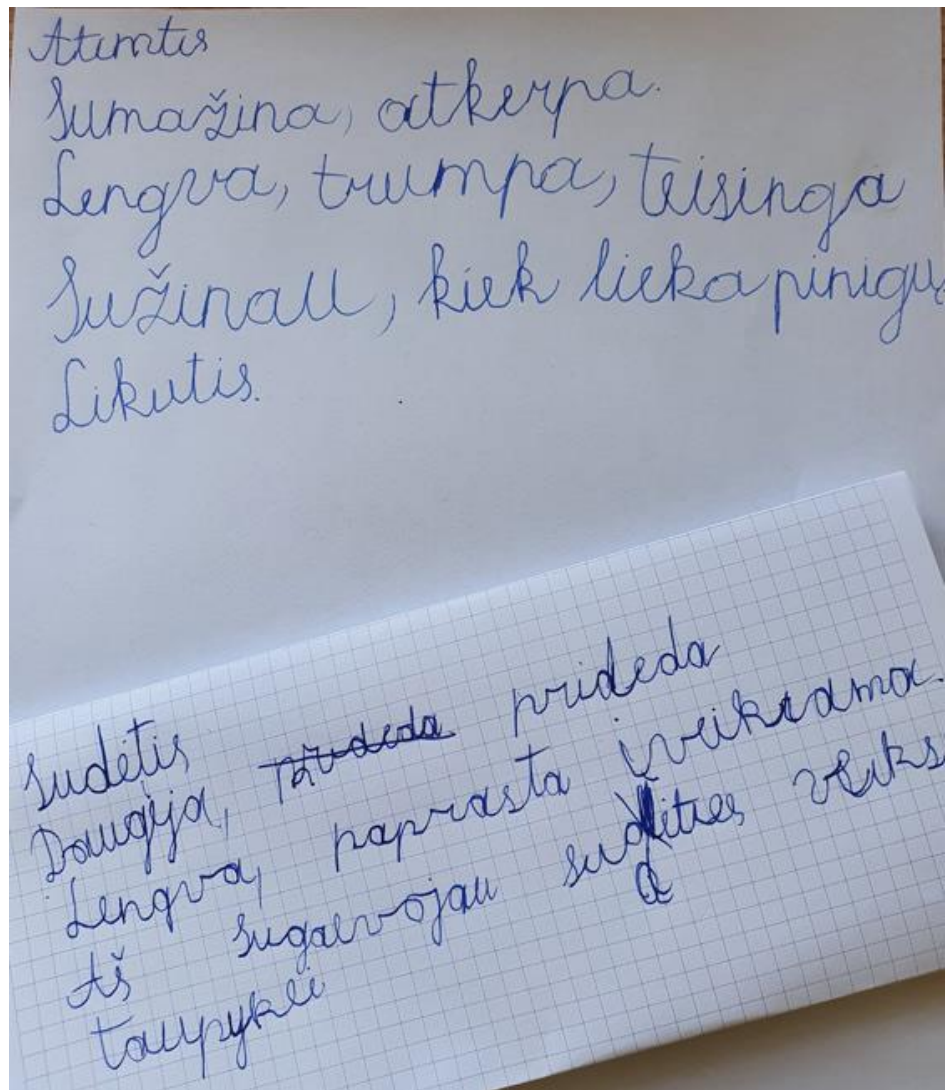 Atimtis
Sumažina, atkerpa.
Lengva, trumpa, teisinga
Sužinau, kiek lieka pinigų.
Likutis.
Sudėtis
Daugėja, prideda prideda
Lengva, paprasta įveikiama.
Aš sugalvojau sudėties veiks
taupyklė